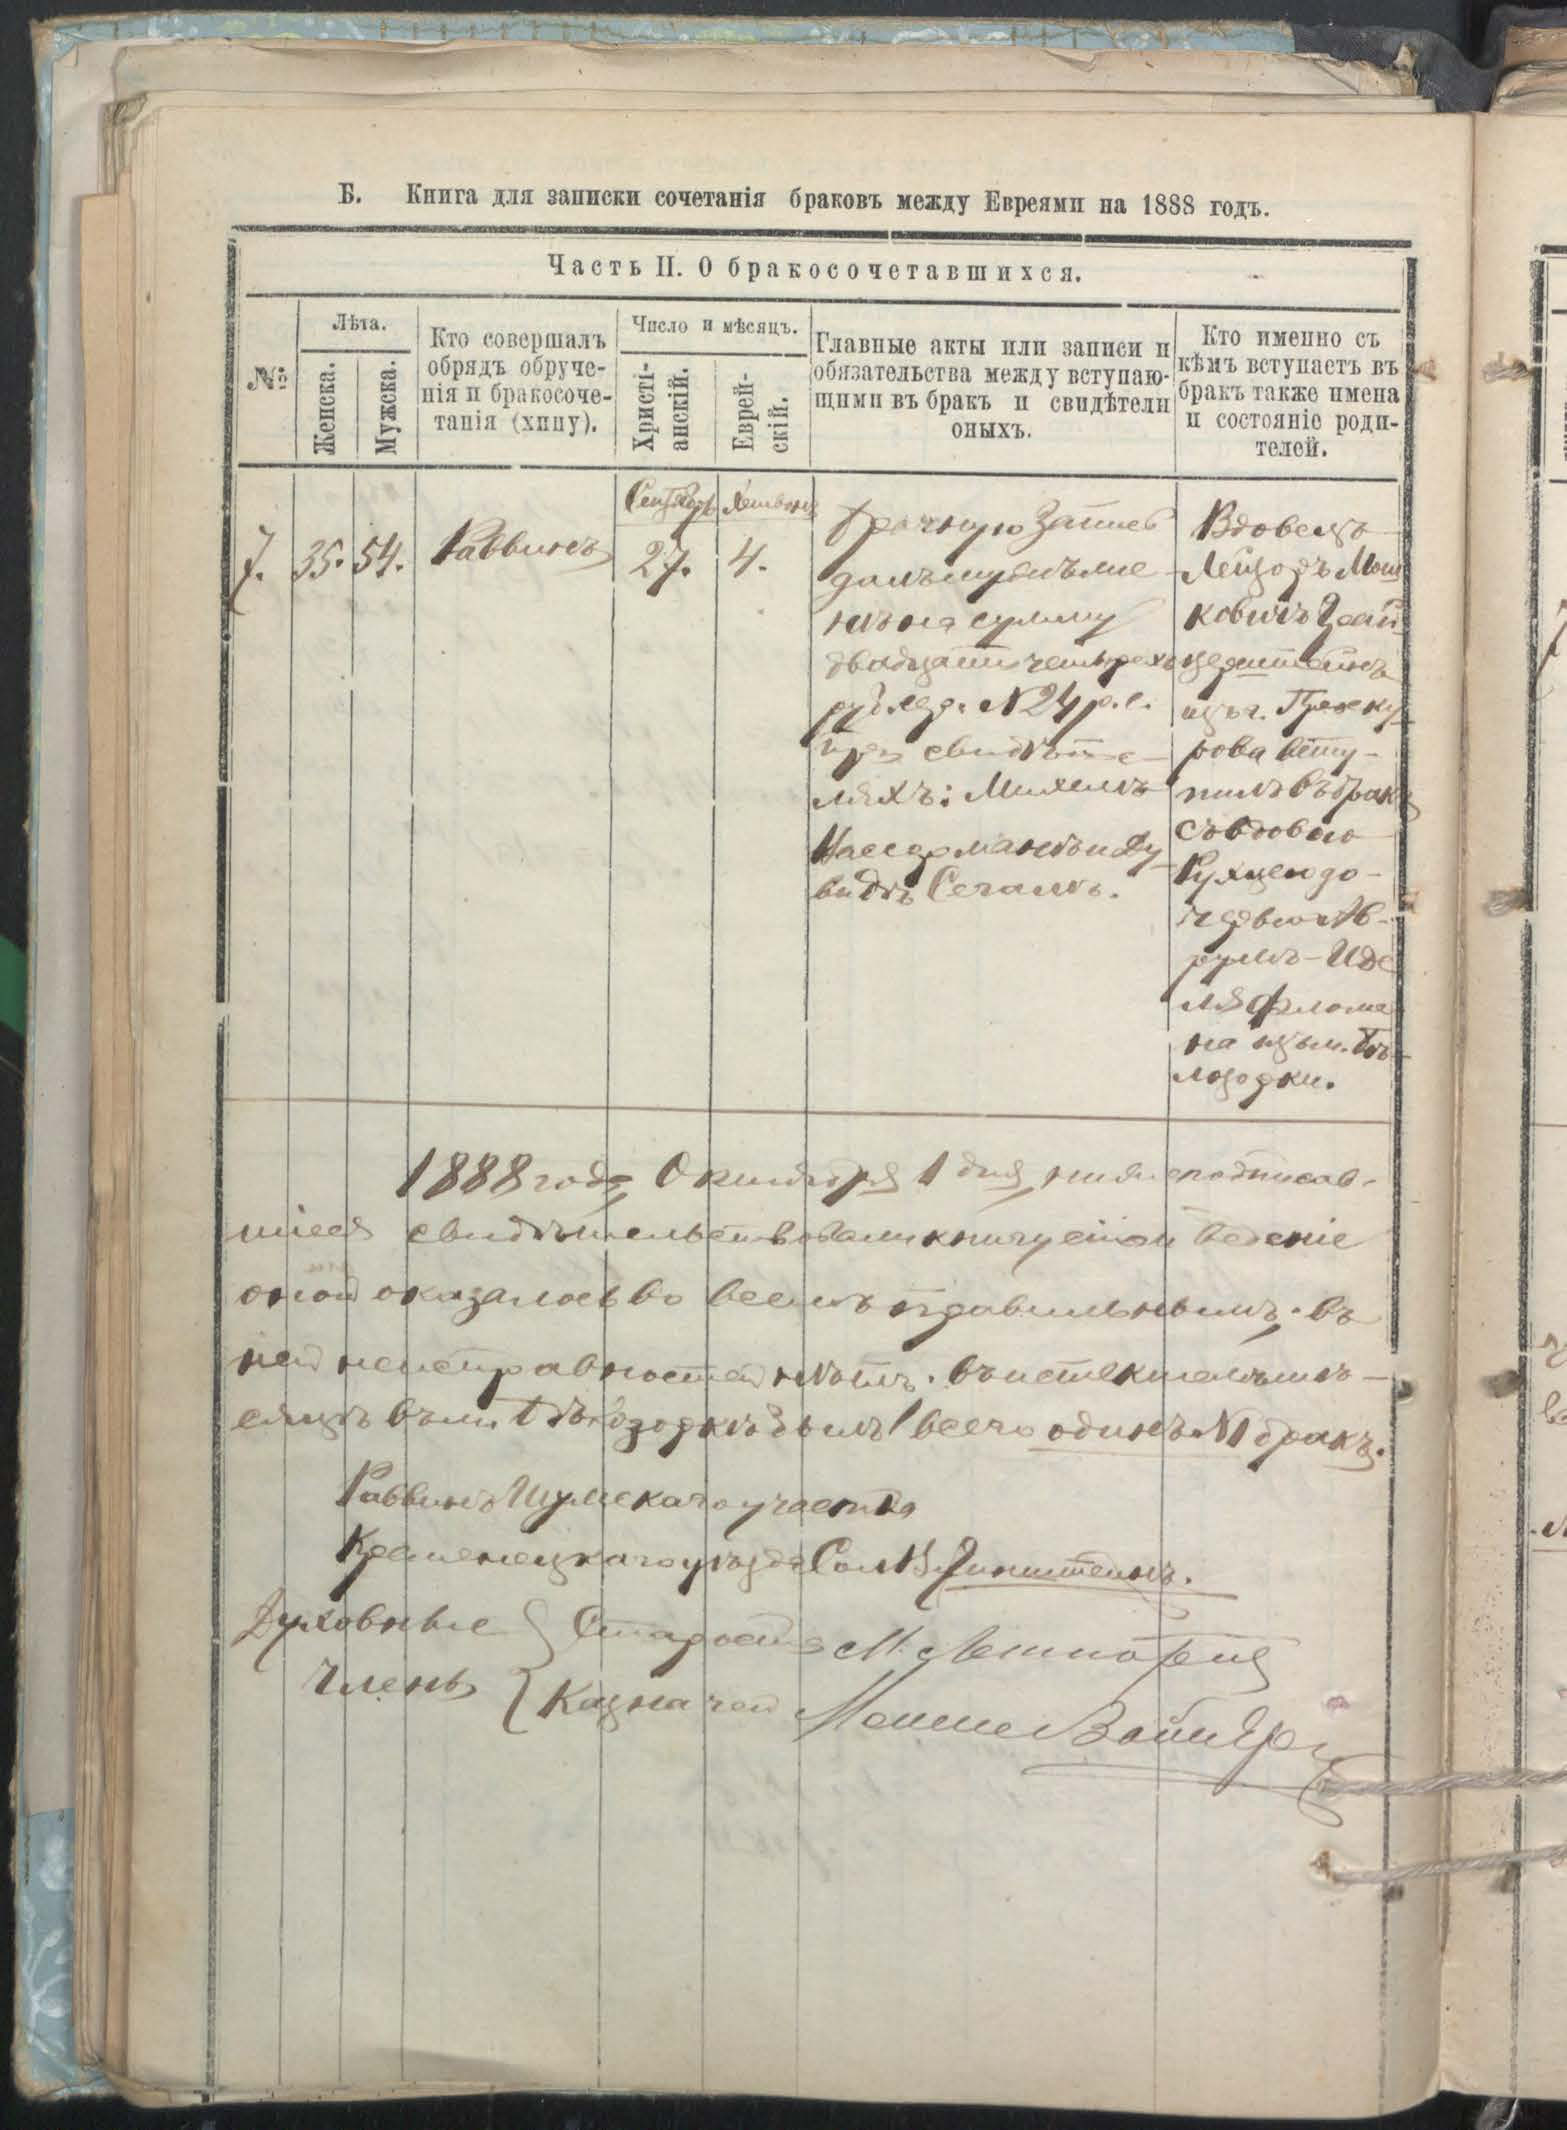 Б. Книга для записки сочетанія браковъ между Евреями на 1888 годъ.
Часть II. О бракосочетавшихся.
№
Лѣта.
Женска.
Мужска.
Кто совершалъ
обрядъ обруче-
нія и бракосоче-
танія (хипу).
Число и мѣсяцъ.
Христі-
анскій.
Еврей-
скій.
Главные акты или записи и
обязательства между вступаю-
щими въ бракъ и свидѣтели
оныхъ.
Кто именно съ
кѣмъ вступаетъ въ
бракъ также имена
и состояніе роди-
телей.
7.
35.
54.
Раввинъ
Сентябрь
27.
4.
Брачную запись
далъ мужъ
на сумму
двадцати четырехъ
рублей. №24 р. с.
при свидѣте-
ляхъ: Михель
Вассерманъ и Ду-
видъ Сегаль.
Вдовецъ
Лейзоръ Мош
ковичъ
изъ г. Проску-
рова всту-
пилъ въ бракъ
съ вдовою
Рухлею до-
черью Ав-
румъ-Иде
ля
на изъ м. Бѣ-
лозорки.
1888 года Октября 1 дня, нижеподписав-
шіеся свидѣтельствовали книгу сію и веденіе
оной оказалось во всемъ правильнымъ. въ
ней неисправностей нѣтъ. въ истекшемъ мѣ-
сяцѣ въ м. Бѣлозоркѣ былъ всего одинъ №1 бракъ.
Раввинъ Шумскаго участка
Кременецкаго уѣзда
Духовные
Члены
Староста М.
Казначей